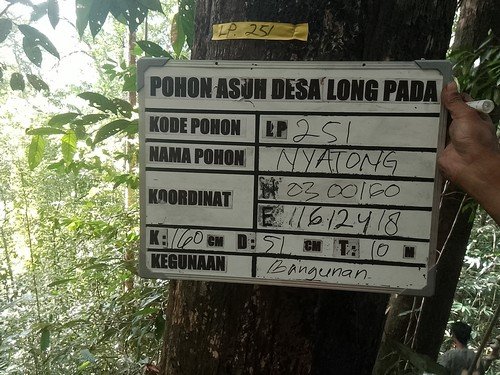 LP. 251
POHON ASUH DESA LONG PADA
KODE POHON LP 251
NAMA POHON NYATONG
KOORDINAT N 03 00160
E 116 12418
K: 160 CM D: 51 CM T: 10 M
KEGUNAAN Bangunan.